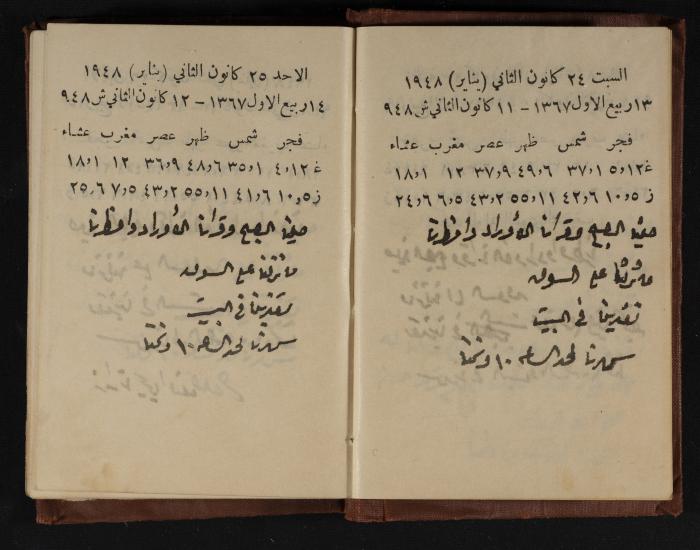 السبت ٢٤ كانون الثاني (يناير) ١٩٤٨
١٣ ربيع الاول ١٣٦٧ – ١١ كانون الثاني ش ٩٤٨
فجر شمس ظهر عصر مغرب عشاء
غ ١٢و٥ ١و٣٧ ٦و٤٩ ٩و٣٧ ١٢ ١و١٨
ز ٥و١٠ ٦و٤٢ ١١و٥٥ ٢و٤٣ ٥و٦ ٦و٢٤
صلينا الصبح وقرأنا الأوراد وافطرنا
ونزلنا على السوق
تغدينا في البيت
سهرنا لحد الساعه ١٠ ونمنا
الاحد ٢٥ كانون الثاني (يناير) ١٩٤٨
١٤ ربيع الاول ١٣٦٧ – ١٢ كانون الثاني ش ٩٤٨
فجر شمس ظهر عصر مغرب عشاء
غ ١٢و٤ ١و٣٥ ٦و٤٨ ٩و٣٦ ١٢ ١و١٨
ز ٥و١٠ ٦و٤١ ١١و٥٥ ٢و٤٣ ٥و٧ ٦و٢٥
صلينا الصبح وقرأنا الأوراد وافطرنا
ونزلنا على السوق
تغدينا في البيت
سهرنا لحد الساعه ١٠ ونمنا